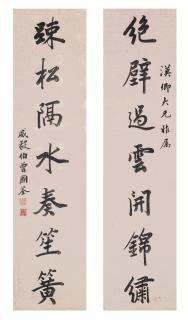 漢卿大兄雅属
絶壁過雲開錦繡
疎松隔水奏笙簧
威毅伯曾國荃